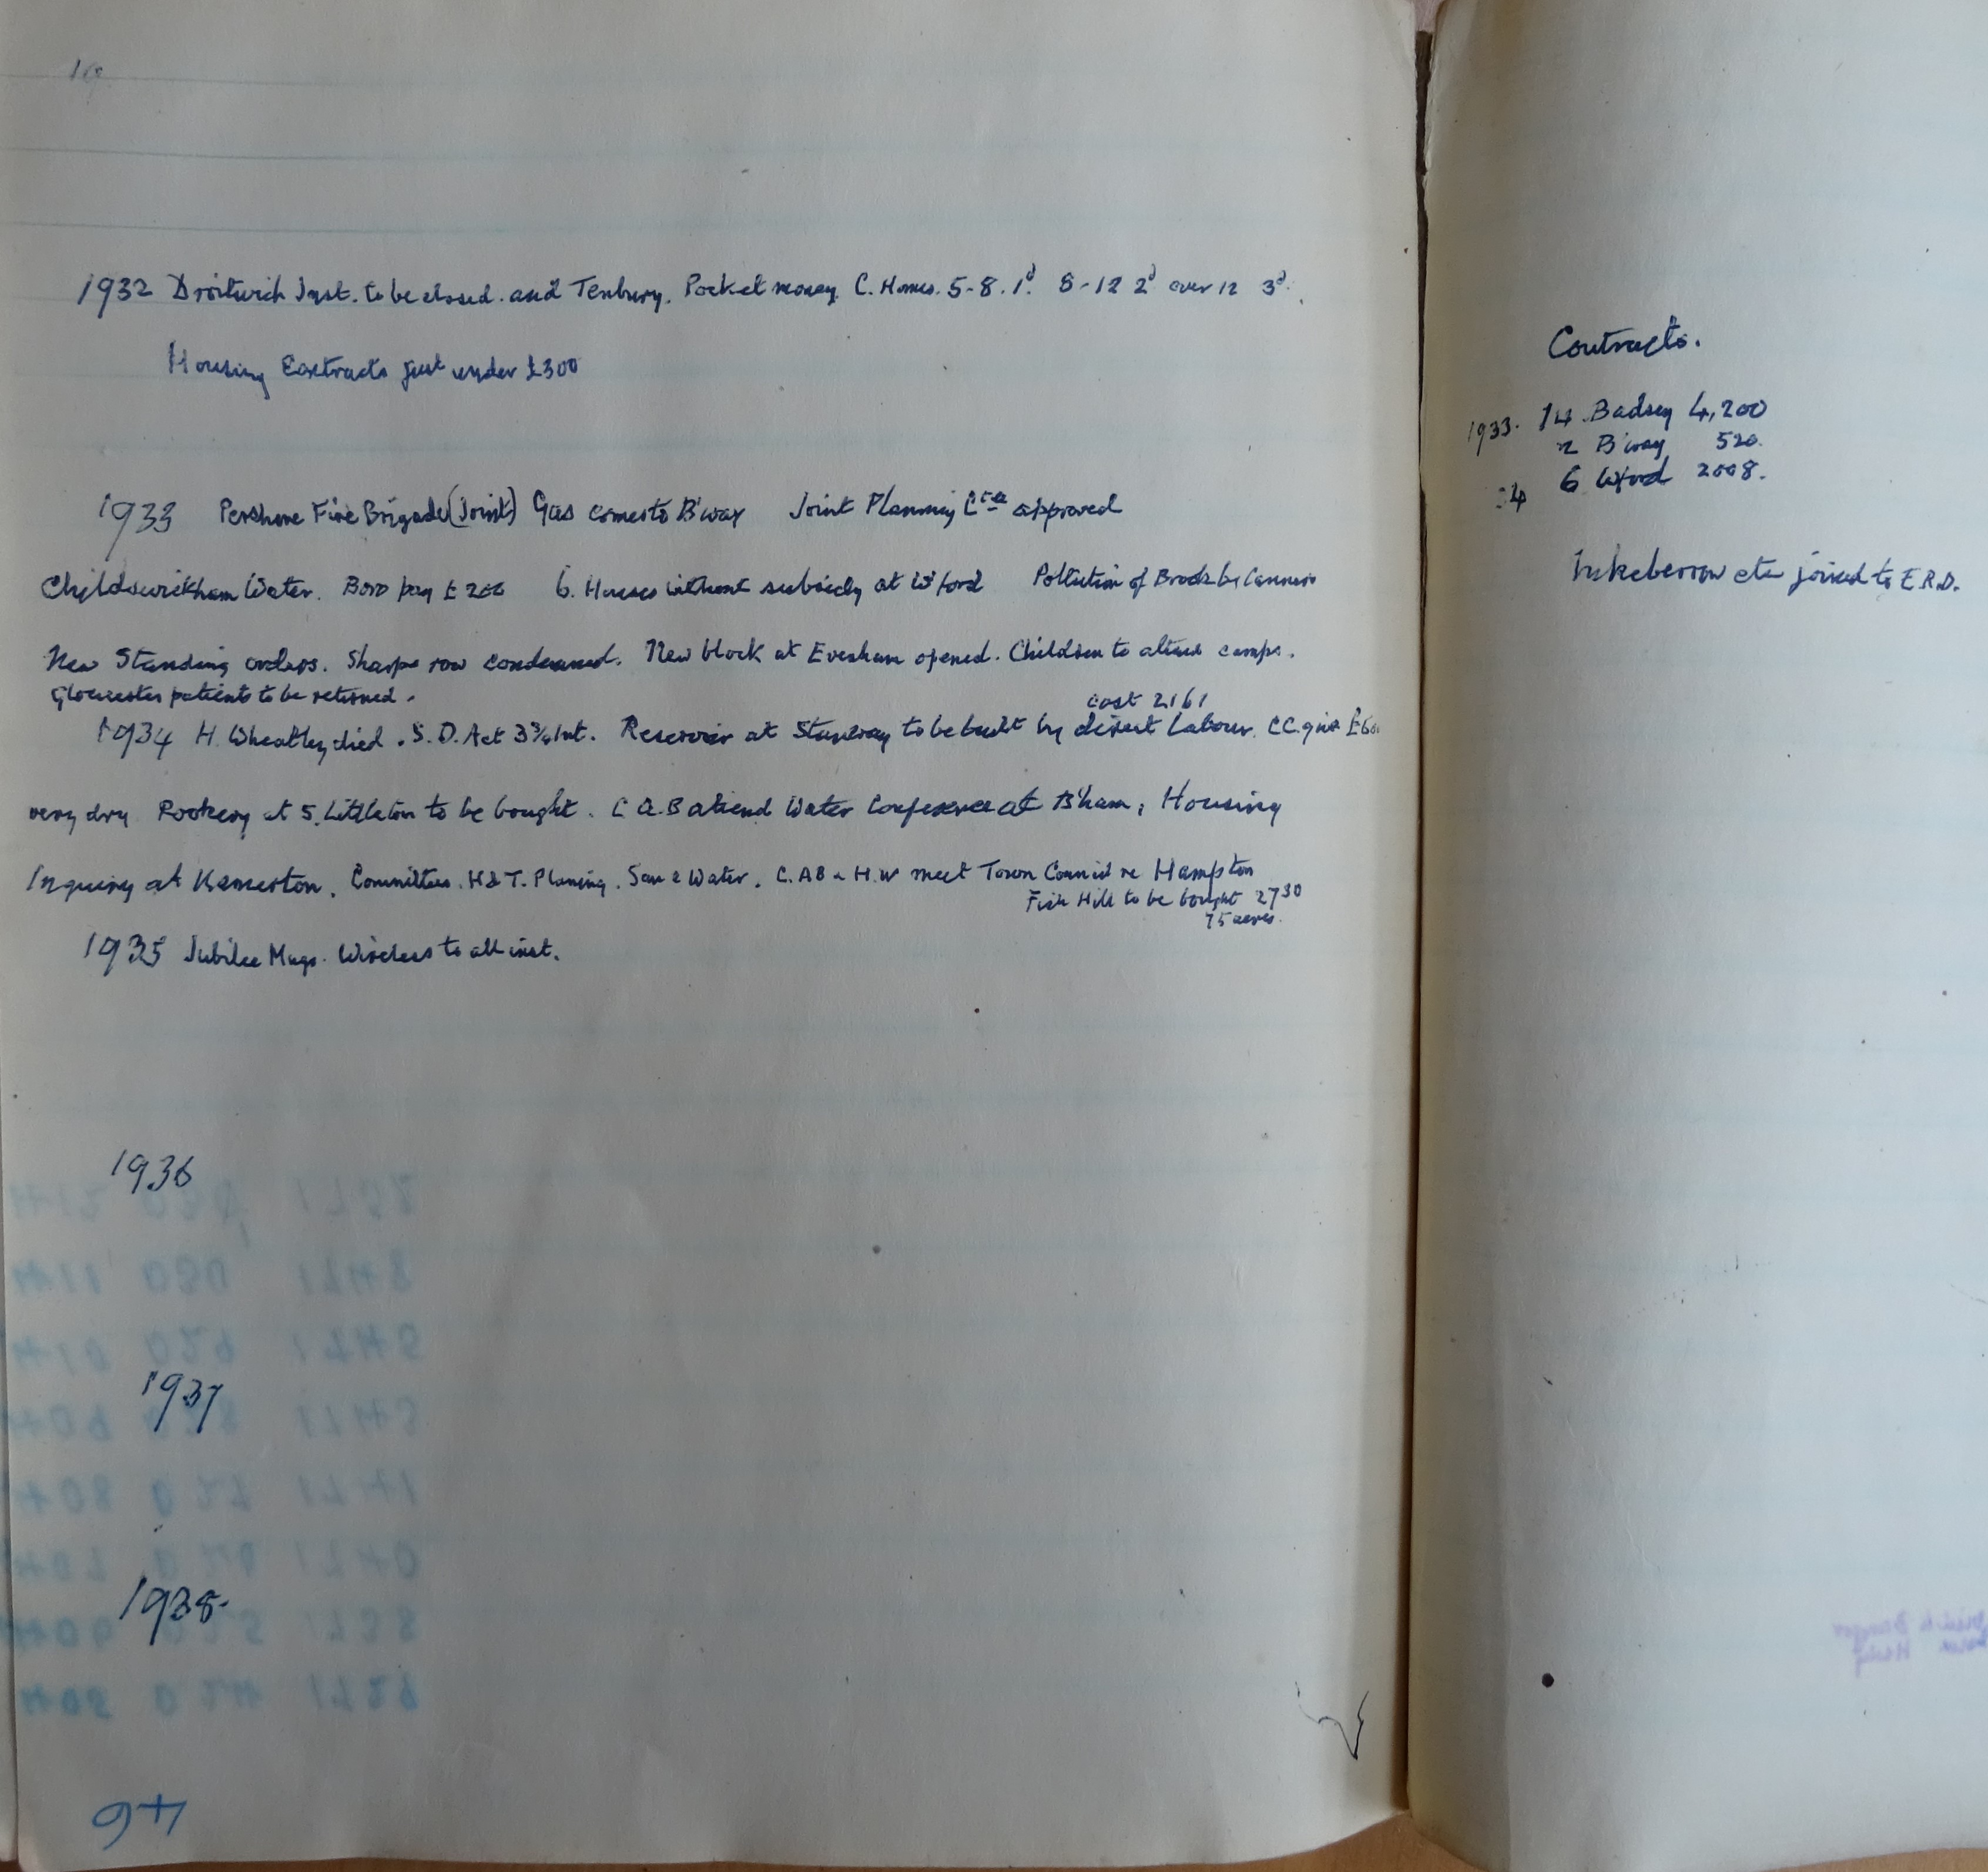 1932 Droitwich Inst. to be closed. and Tenbury. Pocket money. C. Homes. 5-8. 1d. 8-12 2d over 12 3d.
Housing Contracts just under £300
1933 Pershore Fire Brigade (Joint) Gas comes to B'way Joint Planning Ctee approved
Childswickham Water. Boro pay £ 6. Houses without subsidy at W'ford Pollution of Brook by
New Standing orders. Sharps row condemned. New block at Evesham opened. Children to attend camps.
Gloucester patients to be returned.
cost 2161
1934 H. Wheatley died. S. D. Act 3¾ Int. Reservoir at Stanway to be built by direct Labour. CC. give
very dry Rookery at S. Littleton to be bought. C A.B attend Water Conference at B'ham, Housing
Inquiry at Kemerton. Committees. H & T. Planing. San & Water. C. AB & H.W meet Town Council re Hampton
Fish Hill to be bought 2730
75 acres.
1935 Jubilee Mugs. Wireless to all inst.
1936
1937
1938-
46
Contracts.
1933. 14 Badsey 4,200
2 B'way 520.
34 6 W'ford 2008.
Inkberrow etc joined to E.R.D.